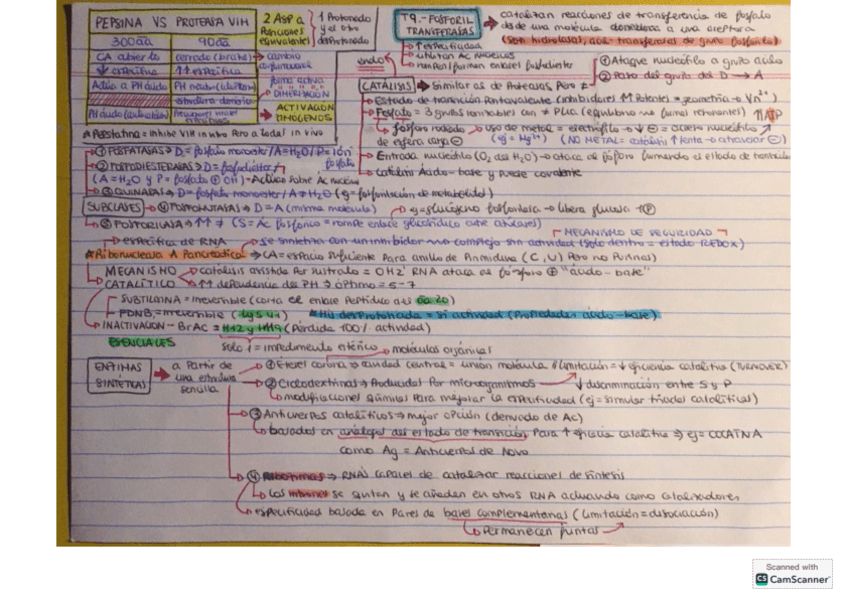 PEPSINA VS PROTEASA VIH
300 aa 90 aa
CA abierto cerrado (brazos) → cambio conformacional
↓ específica ↑↑ específica
Actúa a PH ácido PH neutro (citosol)
forma activa = DIMERIZACIÓN
PH ácido
→ ACTIVACIÓN ZIMÓGENOS
2 Asp a funciones equivalentes
1 Protonado y el otro desprotonado
* Pepstatina = inhibe VIH in vitro pero a todas in vivo
T9.- FOSFORIL TRANSFERASAS
catalizan reacciones de transferencia de fosfato
desde una molécula donadora a una aceptora
(son hidrolasas, aa: transferasas de grupo fosforilo)
↑ especificidad
utilizan Ac. Nucleicos
rompen/forman enlaces fosfodiéster
endo
CATÁLISIS → Similar as de Proteasas pero ≠
① Ataque nucleófilo a grupo ácido
② Paso del grupo del D → A
Estado de transición Pentavalente (inhibidores ↑ Potentes = geometría → Vn²⁺)
Fosfato = 3 grupos ionizables con ≠ PKa
↑ATP
fosforo rodeado de esfera carga ⊖ → uso de metal = electrófilo → ↓ ⊖
(ej = Mg²⁺) (NO METAL = catálisis ↑ lenta → atraviesa ⊖)
Entrada nucleófilo (O₂ del H₂O) → ataca al fósforo formando el estado de transición
Catálisis ácido-base y puede covalente
① FOSFATASAS → D = fosfato monoéster / A = H₂O / P = ión fosfato
② FOSFODIESTERASAS → D = fosfodiéster
(A = H₂O y P = fosfato ⊕ OH) = Actúa sobre Ac nucleicos
③ QUINASAS → D = fosfato monoester / A ≠ H₂O (ej = fosforilación de metabolitos)
SUBCLASES → ④ FOSFOMUTASAS → D = A (misma molécula)
ej = glucógeno fosforilasa → libera glucosa 1P
⑤ FOSFORILASA → ↑↑ ≠ (S = Ac fosfórico = rompe enlace glicosídico entre azúcares)
MECANISMO DE SEGURIDAD
específica de RNA
se sintetiza con un inhibidor → complejo sin actividad (solo dentro = estado REDOX)
* Ribonucleasa A Pancreática → CA = espacio suficiente para anillo de Pirimidina (C, U) pero no Purinas)
MECANISMO → catálisis asistida por sustrato = OH2' RNA ataca al fósforo ⊕ "ácido-base"
CATALÍTICO → ↑↑ dependencia del PH → óptimo = 5-7
SUBTILISINA = irreversible (corta el enlace peptídico aas aa 20)
FDNB = irreversible (Lys 41) * His desprotonada = si actividad (Propiedades ácido-base)
INACTIVACIÓN - BrAC = H12 y H119 (Pérdida 100% actividad)
ESENCIALES
solo 1 = impedimento estérico → moléculas orgánicas
ENZIMAS SINTÉTICAS
a partir de una estructura sencilla
① Éteres corona → cavidad central = unión molécula // limitación = ↓ eficiencia catalítica (TURNOVER)
② Ciclodextrinas → Producidas por microorganismos → ↓ discriminación entre S y P
modificaciones químicas para mejorar la especificidad (ej = simular tríadas catalíticas)
③ Anticuerpos catalíticos → mejor opción (derivado de Ac)
basados en análogos del estado de transición para ↑ eficacia catalítica → ej = COCAÍNA
como Ag = Anticuerpos de Novo
④ Ribozimas → RNAs capaces de catalizar reacciones de síntesis
Los intrones se quitan y se añaden en otros RNA actuando como catalizadores
especificidad basada en Pares de bases complementarias (limitación = disociación)
Permanecen juntas
Scanned with
CS CamScanner